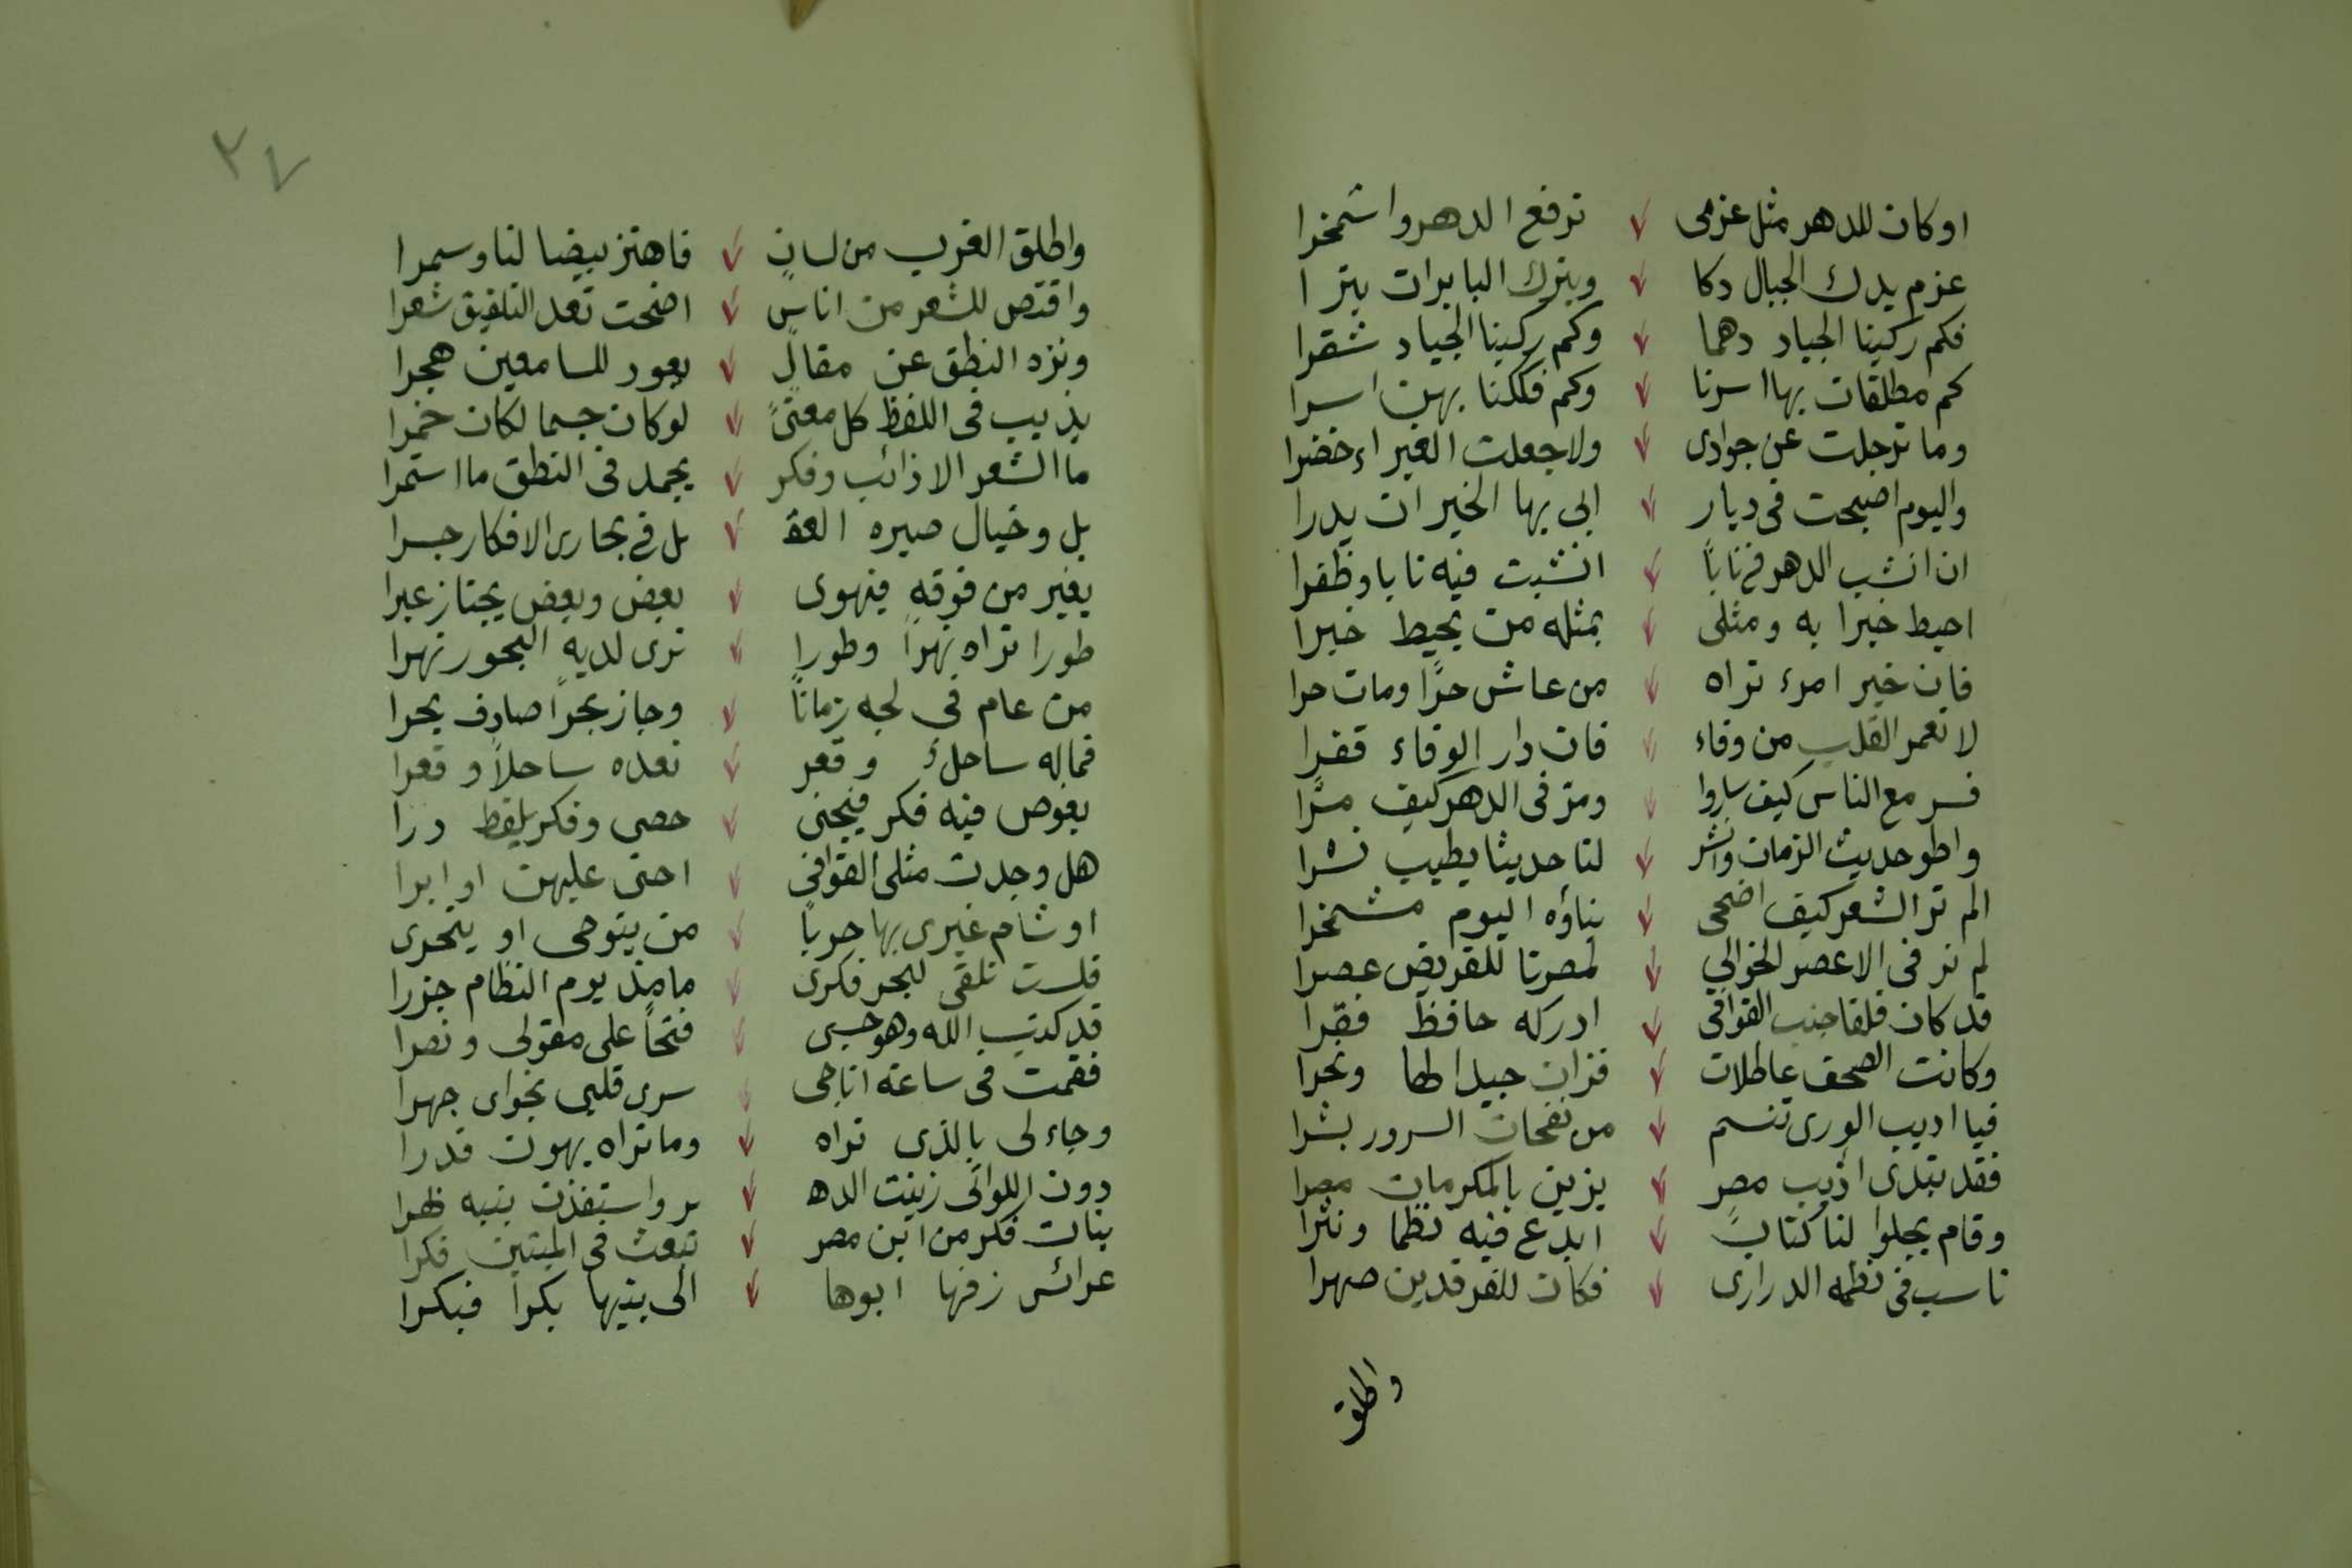 اوكان للدهر مثل عزمى ترفع الدهر واشمخرا
عزم يدك الجبال دكا ويترك البابرات بترا
فكم ركبنا الجياد دهما وكم ركبنا الجياد شقرا
كم مطلقات بها اسرنا وكم فككنا بهن اسرا
وما ترجلت عن جوادى ولا جعلت الغبراء خضرا
واليوم اصبحت فى ديار ابى بها الخير ان يدرا
ان انشب الدهر فيّ ناباً انشبت فيه نابا وظفرا
احيط خبرا به ومثلى بمثله من يحيط خبرا
فان خير امرء تراه من عاش حرًا ومات حرا
لا تعمر القلب من وفاء فان دار الوفاء قفرا
فسر مع الناس كيف ساروا ومرّ فى الدهر كيف مرًّا
واطو حديث الزمان وانشر لنا حديثا يطيب نشرا
الم تر الشعر كيف اضحى بناؤه اليوم مشمخرا
لم نر فى الاعصر الخوالي لمصرنا للقريض عصرا
قد كان قلقا جنب القوافى ادركه حافظ فقرّا
وكانت الصحف عاطلات فزان جيدا لها ونحرا
فيا اديب الورى تنسم من نفحات السرور بشرا
فقد تبدى اديب مصر يزين بالمكرمات مصرا
وقام يجلوا لنا كتاباً ابدع فيه نظما ونثرا
ناسب فى نظمه الدرارى فكان للفرقدين صهرا
واطلق
٢٧
واطلق الغرب من لسانٍ فاهتز بيضا لنا وسمرا
واقتص للشعر من اناسٍ اضحت تعد التلفيق شعرا
ونزه النطق عن مقالٍ يعود للسامعين هجرا
يذيب فى اللفظ كل معنىً لوكان جسما لكان خمرا
ما الشعر الا ذائب وفكر يجمد فى النطق ما استمرا
بل وخيال صيره العقـ ـل فى بحارى الافكار جسرا
يغير من فوقه فيهوى بعض وبعض يجتاز عبرا
طورا تراه نهراً وطورا ترى لديه البحور نهرا
من عام في لجه زماناً وجاز بحراً صادف بحرا
فماله ساحلٌ وقعر تعده ساحلاً وقعرا
يغوص فيه فكر فيجنى حصى وفكر يلقط درا
هل وجدت مثلى القوافي احنى عليهن او ابرا
او شام غيرى بها جوباً من يتوخى او يتحرى
فلست تلقى لبحر فكرى مامذ يوم النظام جزرا
قد كتب الله وهو حسبى فتحاً على مقولى ونصرا
فقمت فى ساعة اناجى سرى قلبي نجواى جهرا
وجاء لى بالذى تراه وما تراه يهون قدرا
دون اللواتى زينت الدهـ ـر واستفذت بنيه طرا
بنات فكر من ابن مصر تبعث فى الميتين فكرا
عرائس زفها ابوها الى بنيها بكراً فبكرا